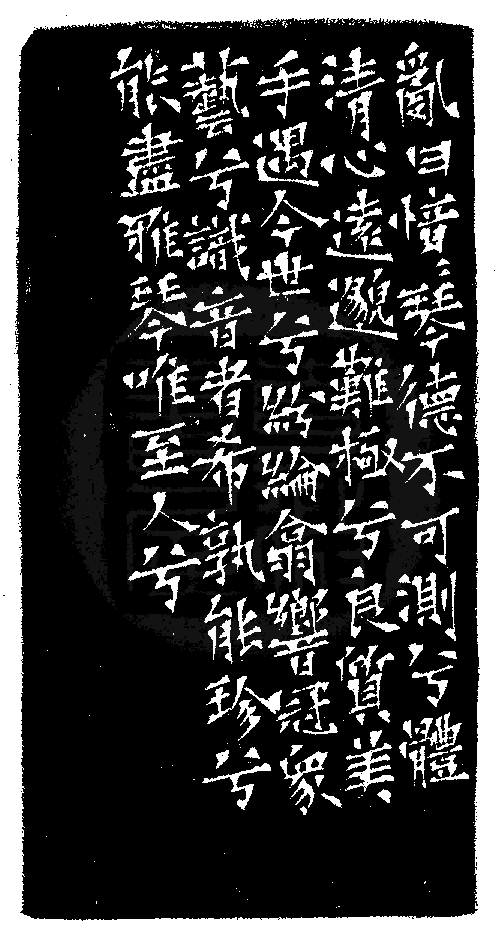 亂曰愔〻琴德不可測兮體
清心遠邈難極兮良質美
手遇今世兮紛綸翕響冠衆
藝兮識音者希孰能珍兮
能盡雅琴唯至人兮